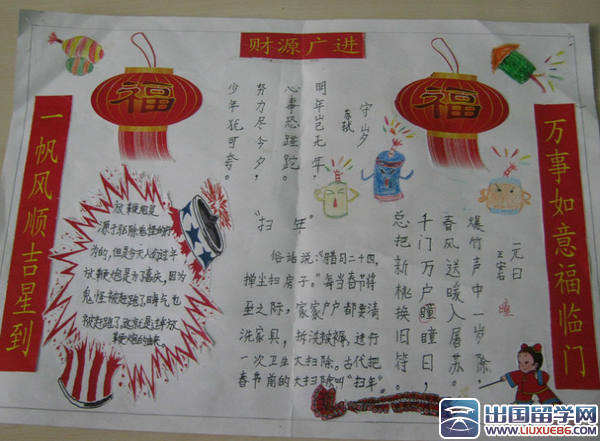 财源广进
一帆风顺吉星到
万事如意福临门
福
福
守岁
苏轼
明年岂无年，
心事恐蹉跎。
努力尽今夕，
少年犹可夸。
放鞭炮是
源于驱除鬼怪的行
为的，但是今天人们过年
放鞭炮是为了喜庆，因为
鬼怪被赶跑了晦气也
被赶跑了这就是过年放
鞭炮的由来
“扫年”
俗话说：“腊月二十四，
掸尘扫房子。”每当春节将
至之际，家家户户都要清
洗家具，拆洗被褥，进行
一次卫生大扫除，古代把
春节前的大扫除叫“扫年”。
元日
王安石
瞳
爆竹声中一岁除，
春风送暖入屠苏。
千门万户瞳瞳日，
总把新桃换旧符。
出国留学网
WWW.LIUXUE86.COM